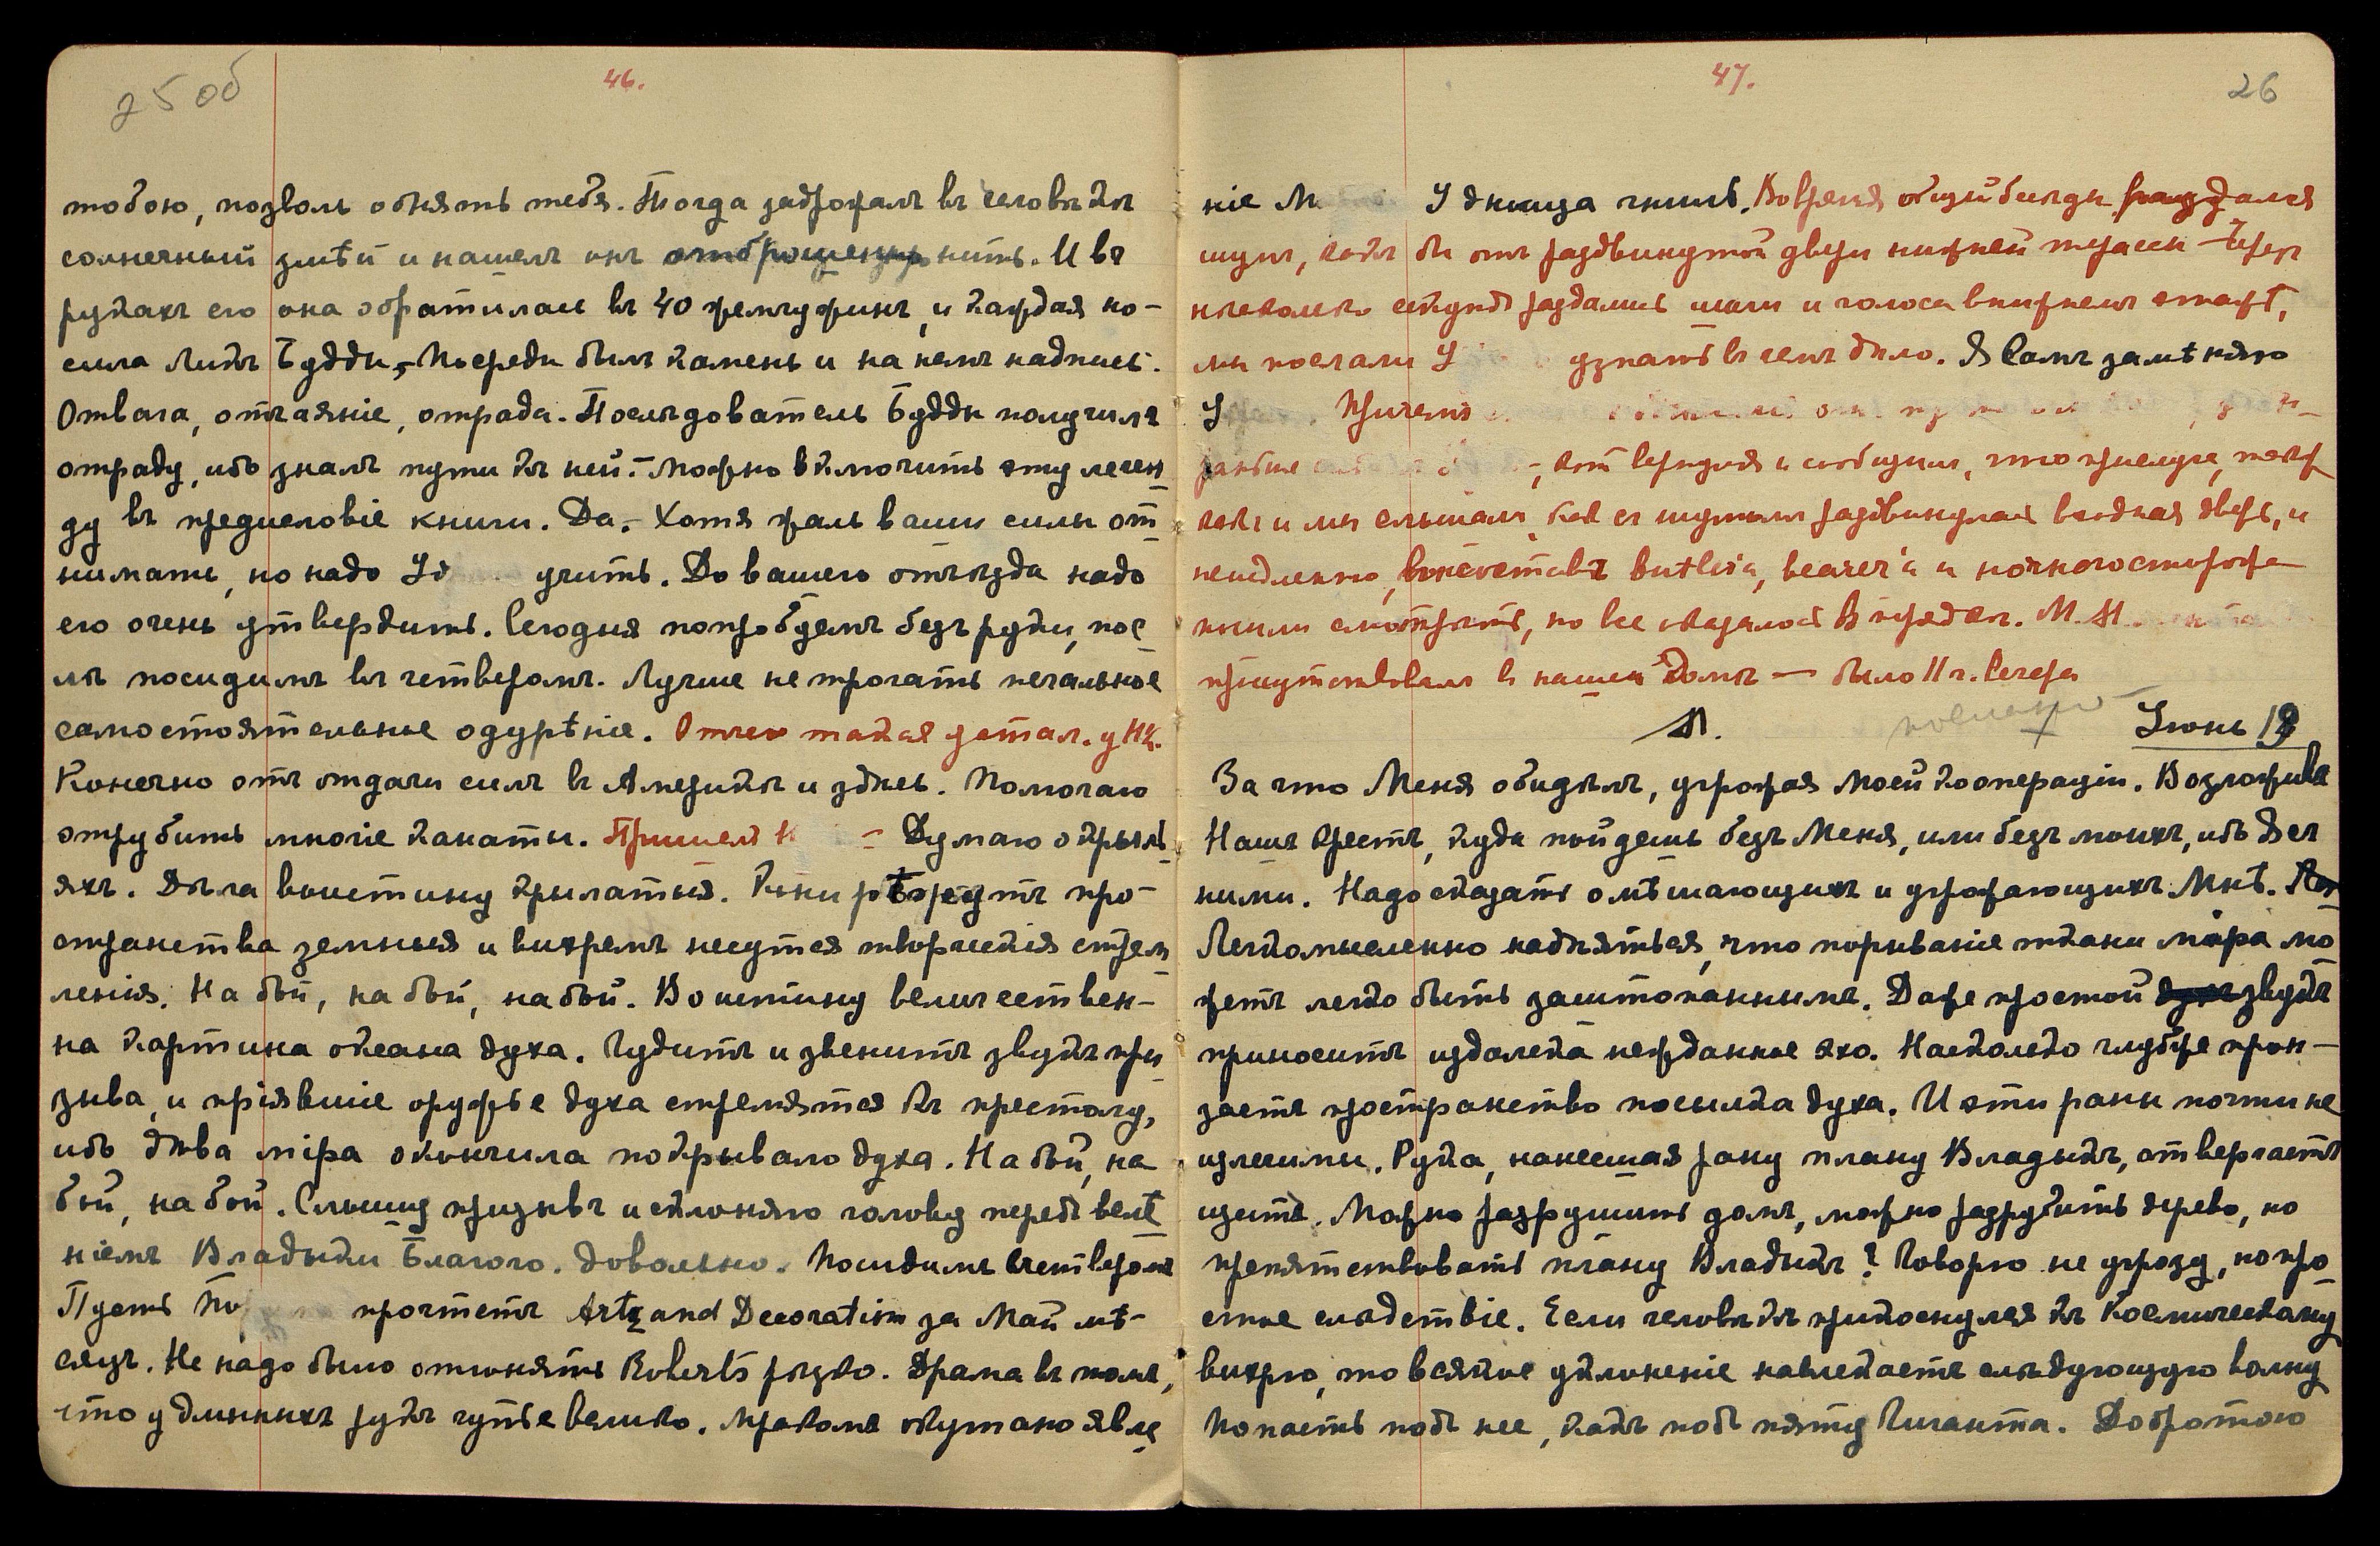 25 об
46.
тобою, позволь обнять тебя. Тогда задрожалъ въ человѣкѣ
солнечный змѣй и нашелъ онъ отброшенную нить. И въ
рукахъ его она обратилась въ 40 жемчужинъ, и каждая но-
сила Ликъ Будды, Посреди былъ камень и на немъ надпись:
Отвага, отчаяніе, отрада. Послѣдователь Будды получилъ
отраду, ибо зналъ пути къ ней. – Можно включить эту леген
ду въ предисловіе книги. Да. – Хотя жаль ваши силы от
нимать, но надо Уд учить. До вашего отъѣзда надо
его очень утвердить. Сегодня попробуемъ безъ руки, пос
лѣ посидимъ въ четверомъ. Лучше не трогать печальное
самостоятельное одурѣніе. Отчего такая устал. у НК.
Конечно отъ отдачи силъ въ Америкѣ и здѣсь. Помогаю
отрубить многіе канаты. Пришелъ Н – Думаю о крыль
яхъ. Дѣла воистину крылатыя. Кони рѣжутъ про-
странства земныя и вихремъ несутся творческія стрем
ленія. На бой, на бой, на бой. Воистину величествен-
на картина океана духа. Гудитъ и звенитъ звукъ при
зыва, и пріявшіе оружье духа стремятся къ престолу,
ибо дѣва міра окончила покрывало духа. На бой, на
бой, на бой. Слышу призывъ и склоняю голову передъ велѣ
ніемъ Владыки Благого. Довольно. Посидимъ вчетверомъ
Пусть По прочтетъ Arts and Decoration за Май мѣ-
сяцъ. Не надо было отгонять Roberts рѣзко. Драма въ томъ,
что у длинныхъ рукъ чутье велико. Мракомъ окутано явле
47.
26
ніе М У днища гниль. Во время общей бесѣды раздался
шумъ, какъ бы отъ раздвинутой двери нижней терассы – Черезъ
нѣсколько секундъ раздались шаги и голоса въ нижнемъ этажѣ,
мы послали У узнать въ чемъ дѣло. Я Самъ замѣняю
У Причемъ
раньше , вернулся и сообщилъ, что прислуга, также
какъ и мы слышали, какъ съ шумомъ раздвинулась входная дверь, и
немедленно, butler'a, bearer'a и ночного сторожа
пошли смотрѣть, но все оказалось въ порядкѣ. М. Н.
присутствовалъ въ нашемъ Домѣ — было 11 ч. вечера
Іюнь 19
За что Меня обидѣлъ, угрожая моей кооперации. Возложивъ
Нашъ Крестъ, куда пойдешь безъ Меня, или безъ моихъ, ибо Я съ
ними. Надо сказать о мѣшающихъ и угрожающихъ Мнѣ.
Легкомысленно надѣяться, что порываніе ткани міра мо
жетъ легко быть заштопаннымъ. Даже простой звукъ
приноситъ издалека нежданное эхо. Насколько глубже прон-
заетъ пространство посылка духа. И эти раны почти не
излечимы. Рука, нанесшая рану плану Владыкъ, отвергаетъ
щитъ. Можно разрушить домъ, можно разрубить дерево, но
препятствовать плану Владыкъ? Говорю не угрозу, но про
стое слѣдствіе. Если человѣкъ прикоснулся къ Космическому
вихрю, то всякое уклоненіе навлекаетъ слѣдующую волну
Попасть подъ нее, какъ подъ пяту Гиганта. Добротою